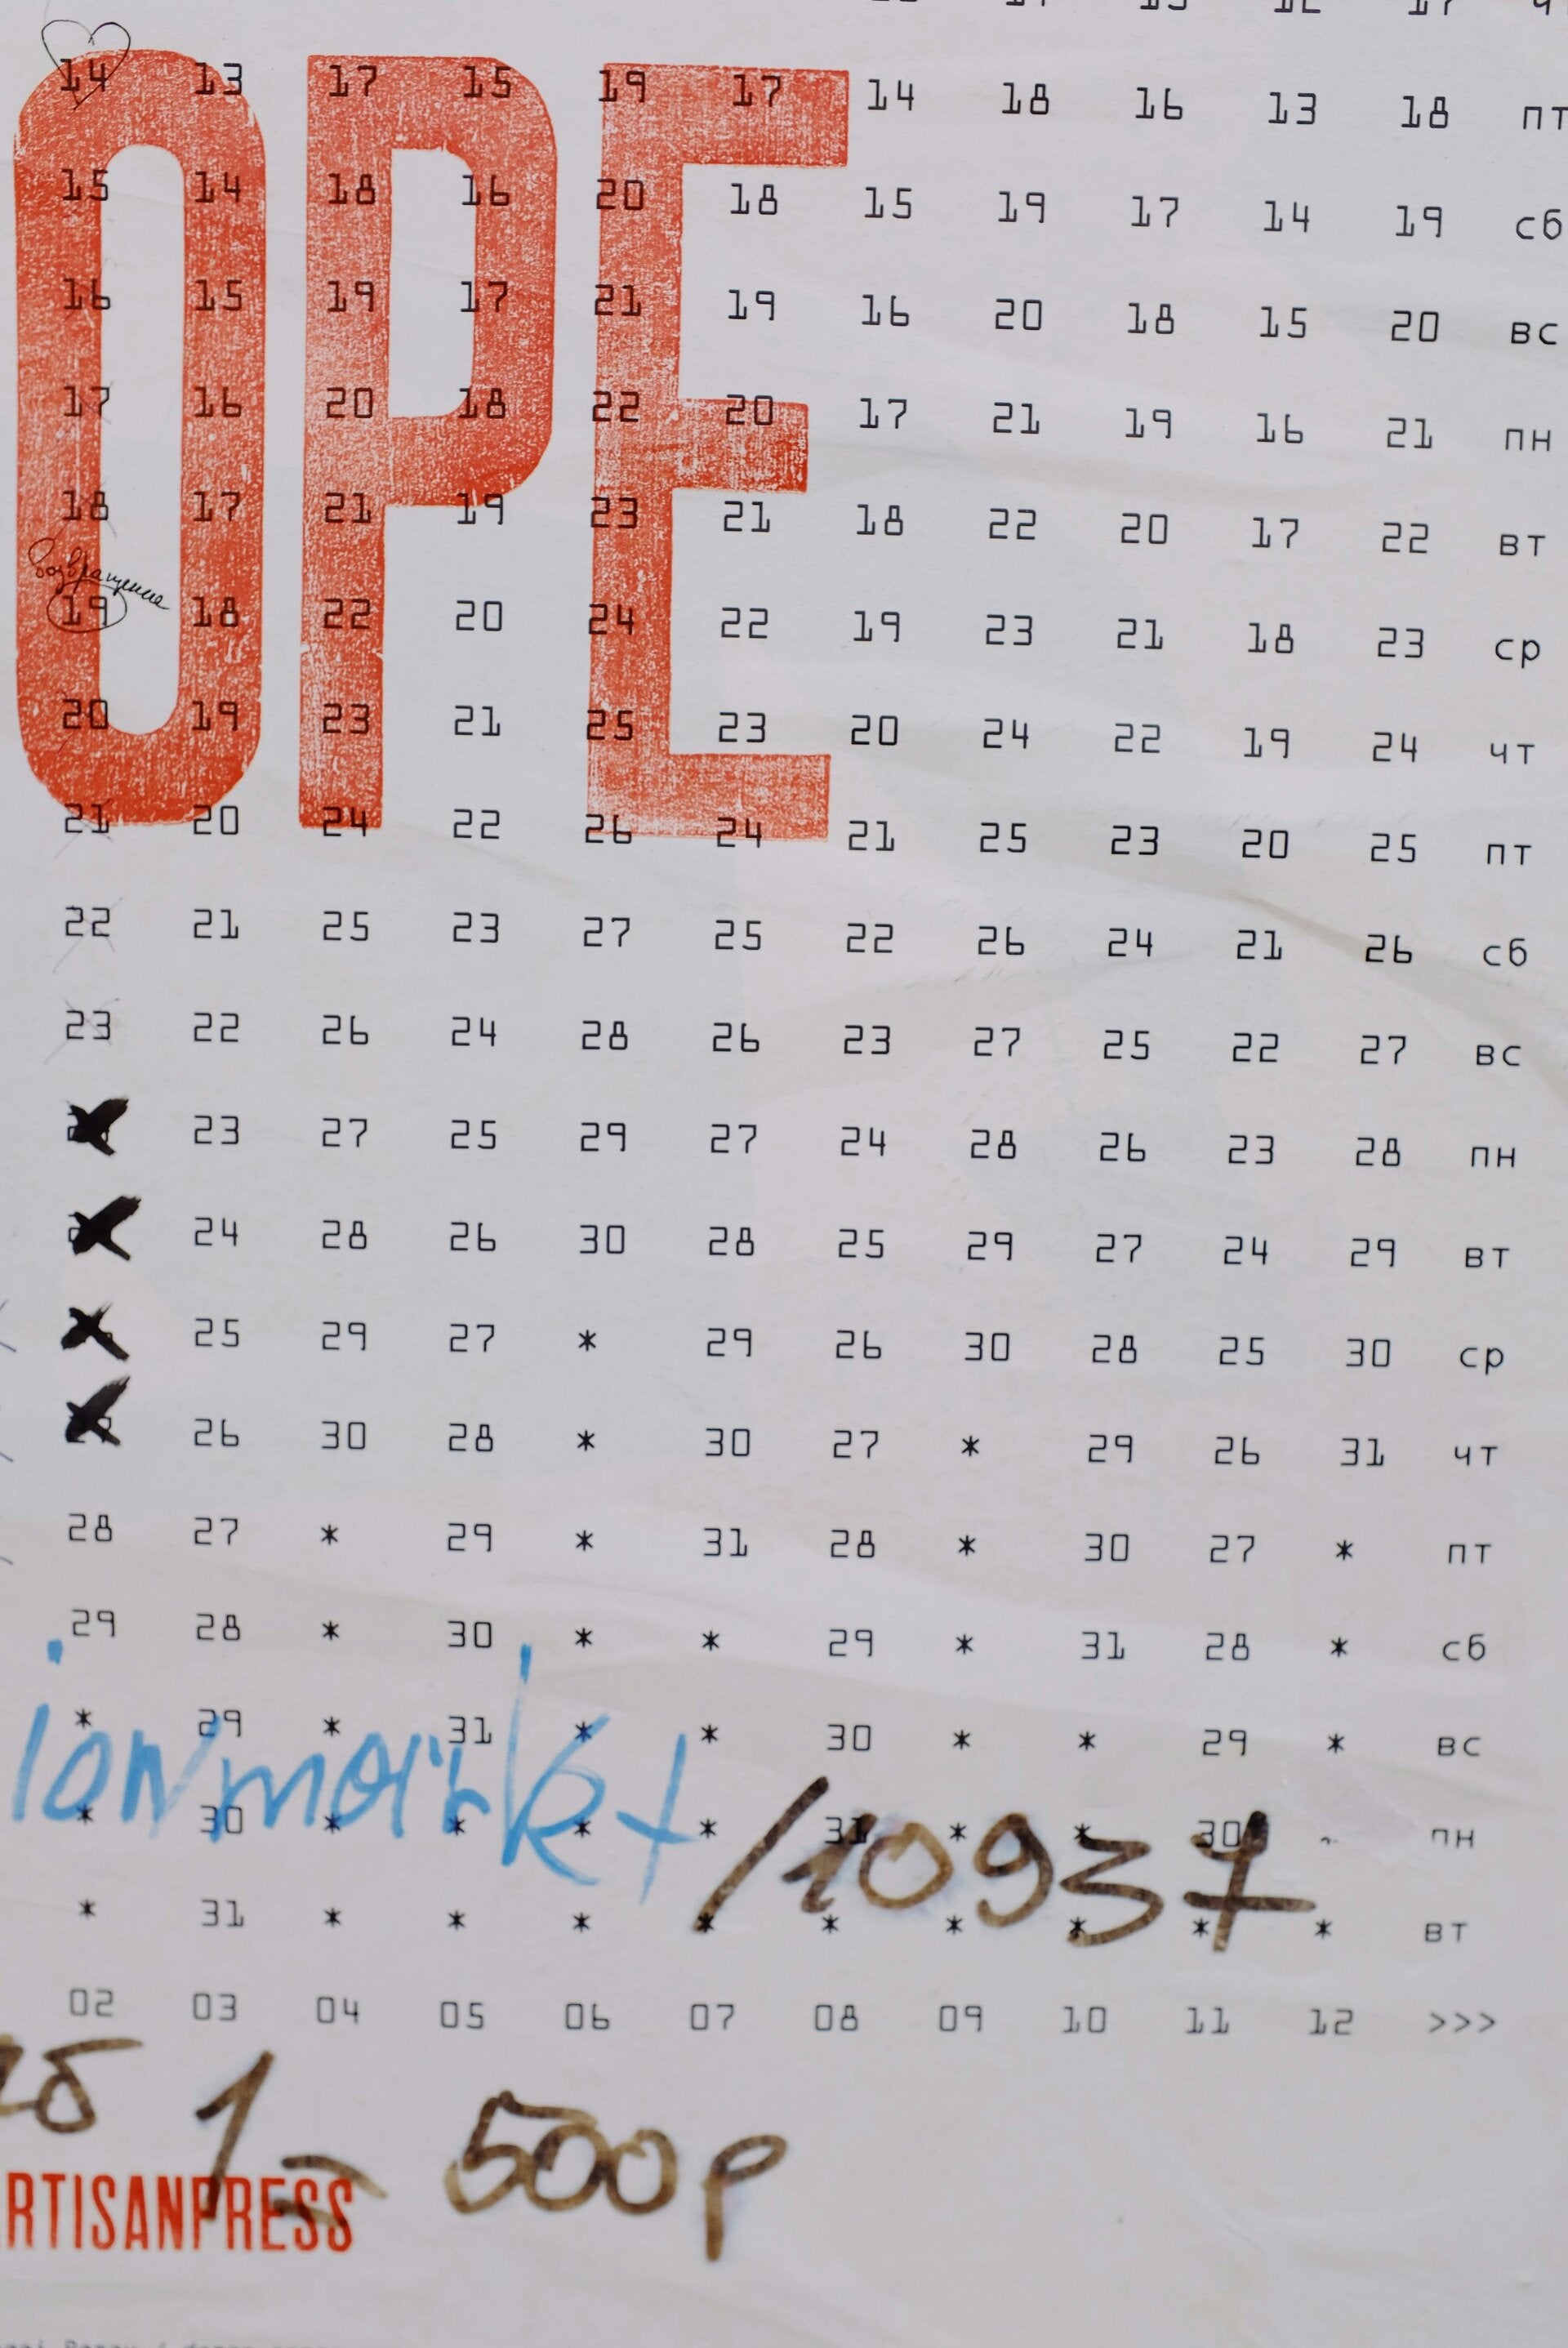 OPE
14 13 17 15 19 17 14 18 16 13 18 пт
15 14 18 16 20 18 15 19 17 14 19 сб
16 15 19 17 21 19 16 20 18 15 20 вс
17 16 20 18 22 20 17 21 19 16 21 пн
18 17 21 19 23 21 18 22 20 17 22 вт
Возвращение
19 18 22 20 24 22 19 23 21 18 23 ср
20 19 23 21 25 23 20 24 22 19 24 чт
21 20 24 22 26 24 21 25 23 20 25 пт
22 21 25 23 27 25 22 26 24 21 26 сб
23 22 26 24 28 26 23 27 25 22 27 вс
23 27 25 29 27 24 28 26 23 28 пн
24 28 26 30 28 25 29 27 24 29 вт
25 29 27 * 29 26 30 28 25 30 ср
26 30 28 * 30 27 * 29 26 31 чт
28 27 * 29 * 31 28 * 30 27 * пт
29 28 * 30 * * 29 * 31 28 * сб
* 29 * 31 * * 30 * * 29 * вс
* 30 * * * * 31 * * 30 пн
/10937
* 31 * * * * * * * * * вт
02 03 04 05 06 07 08 09 10 11 12 >>>
1 - 500р
RTISANPRESS